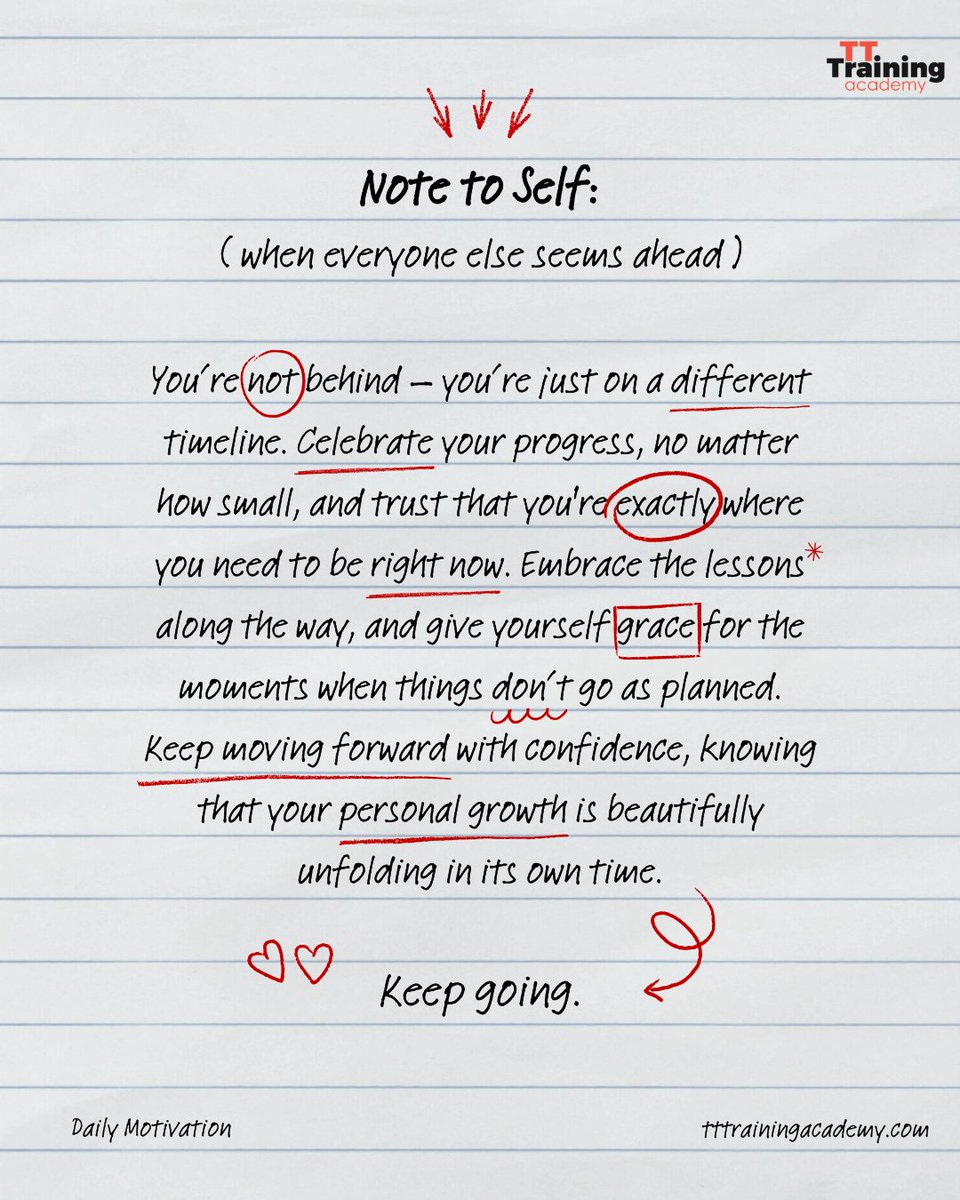 TT
Training
academy
Note to Self:
( when everyone else seems ahead )
You´re not behind – you´re just on a different
timeline. Celebrate your progress, no matter
how small, and trust that you're exactly where
you need to be right now. Embrace the lessons*
along the way, and give yourself grace for the
moments when things don´t go as planned.
Keep moving forward with confidence, knowing
that your personal growth is beautifully
unfolding in its own time.
Keep going.
Daily Motivation
tttrainingacademy.com